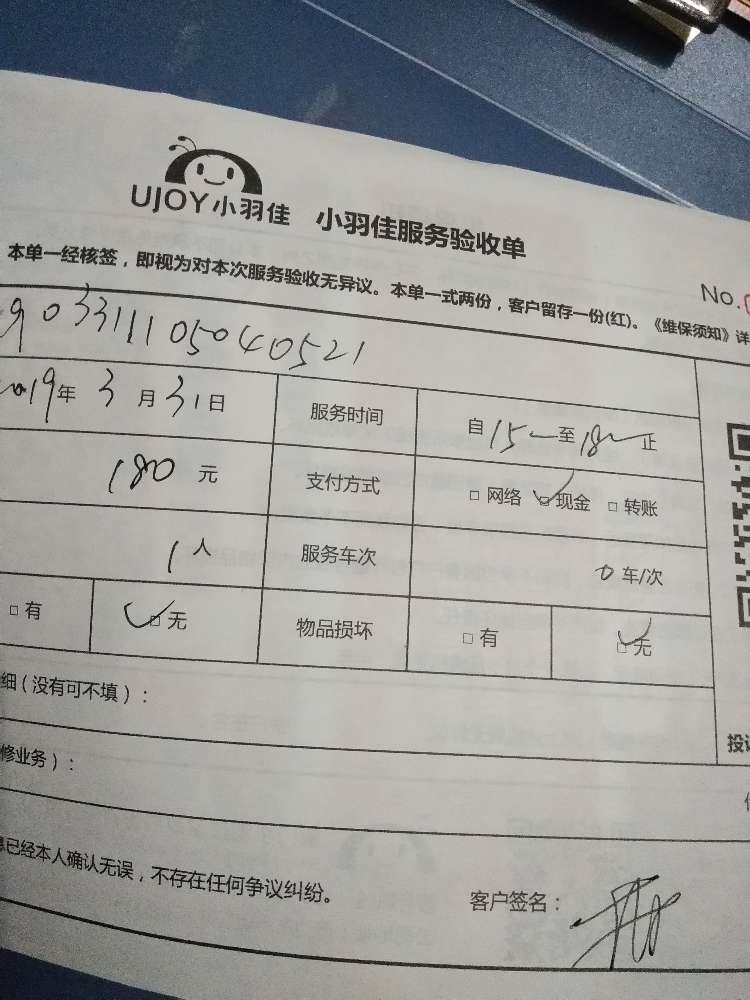 UJOY小羽佳 小羽佳服务验收单
No.
本单一经核签，即视为对本次服务验收无异议。本单一式两份，客户留存一份(红)。《维保须知》详
903311105040521
2019年 3月31日 服务时间 自15 至18 止
180元 支付方式 □网络 ☑现金 □转账
1人 服务车次 0车/次
□有 ☑无 物品损坏 □有 ☑无
细（没有可不填）：
投诉
修业务）：
息已经本人确认无误，不存在任何争议纠纷。 客户签名：